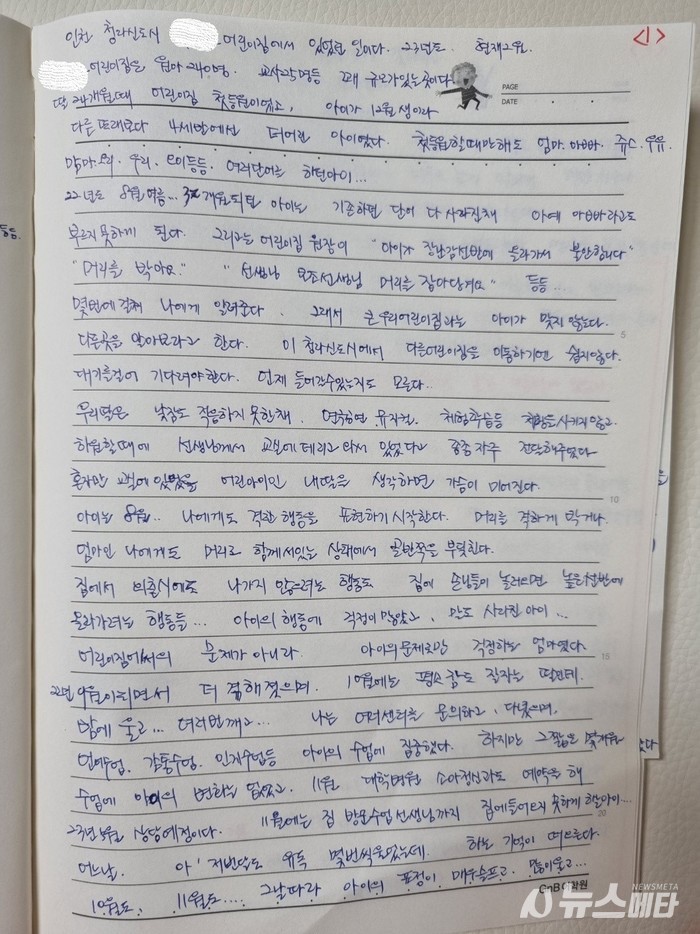 <1>
인천 청라신도시 어린이집에서 있었던 일이다. 23년도. 현재2월.
PAGE
DATE
어린이집은 원아 240여명. 교사25명등 꽤 규모가있는곳이다.
딸 24개월때 어린이집 첫등원이였고, 아이가 12월생이라
다른또래보다 4세반에선 더어린 아이였다. 첫등원할때만해도 엄마. 아빠. 쥬스. 우유.
우리. 등등. 여러단어는 하던아이...
22년도 8월여름... 개월 되던 아이는 기존하던 단어 다 사라진채 아예 아빠라고도
부르지못하게 된다. 그리고는 어린이집 원장이 "아이가 장난감선반에 올라가서 불안합니다"
"머리를 박아요." "선생님 보조선생님 머리를 잡아당겨요" 등등...
몇번에걸쳐 나에게 알려준다. 그래서 큰 우리어린이집과는 아이가 맞지않는다.
5
다른곳을 알아보라고 한다. 이 청라신도시에서 다른어린이집을 이동하기엔 쉽지않다.
대기를걸어 기다려야한다. 언제 들어갈수있는지도 모른다..
우리딸은 낮잠도 적응하지 못한채. 뮤지컬. 체험학습등 체험을시키지않고
하원할때에 선생님께서 교실에 데리고 와서 있었다고 종종자주 전달해주었다
10
혼자만 교실에 있었을 어린아이인 내딸을 생각하면 가슴이 미어진다.
아이는 8월.. 나에게도 격한 행동을 표현하기 시작한다. 머리를 격하게 박거나.
엄마인 나에게도 머리로 함께서있는 상태에서 골반쪽을 부딪힌다.
집에서 외출시에도 나가지 않으려는 행동도 집에 손님들이 놀러오면 놀잇감선반에
올라가려는 행동들... 아이의 행동에 걱정이 많았고, 말도 사라진 아이...
15
어린이집에서의 문제가아니라. 아이의문제로만 걱정하는 엄마였다.
22년 9월이되면서 더 심해졌으며. 10월에는 평소 잠도 잘자는 딸인데.
밤에 울고... 여러번깨고... 나는 여러센터를 문의하고, 다녔으며.
언어수업. 감통수업. 인지수업등 아이의 수업에 집중했다. 하지만 그짧은 몇개월
수업에 아이의 변화는 없었고. 11월 대학병원 소아정신과도 예약을 해
20
23년 5월 상담예정이다. 11월에는 집 방문수업선생님까지 집에들어오지 못하게 했던아이...
어느날. 아! 저번달도 유독 몇번씩울었는데. 하는 기억이 떠오른다.
10월도. 11월도.... 그날따라 아이의 표정이 매우슬프고. 많이울고...
NEWSMETA
뉴스메타